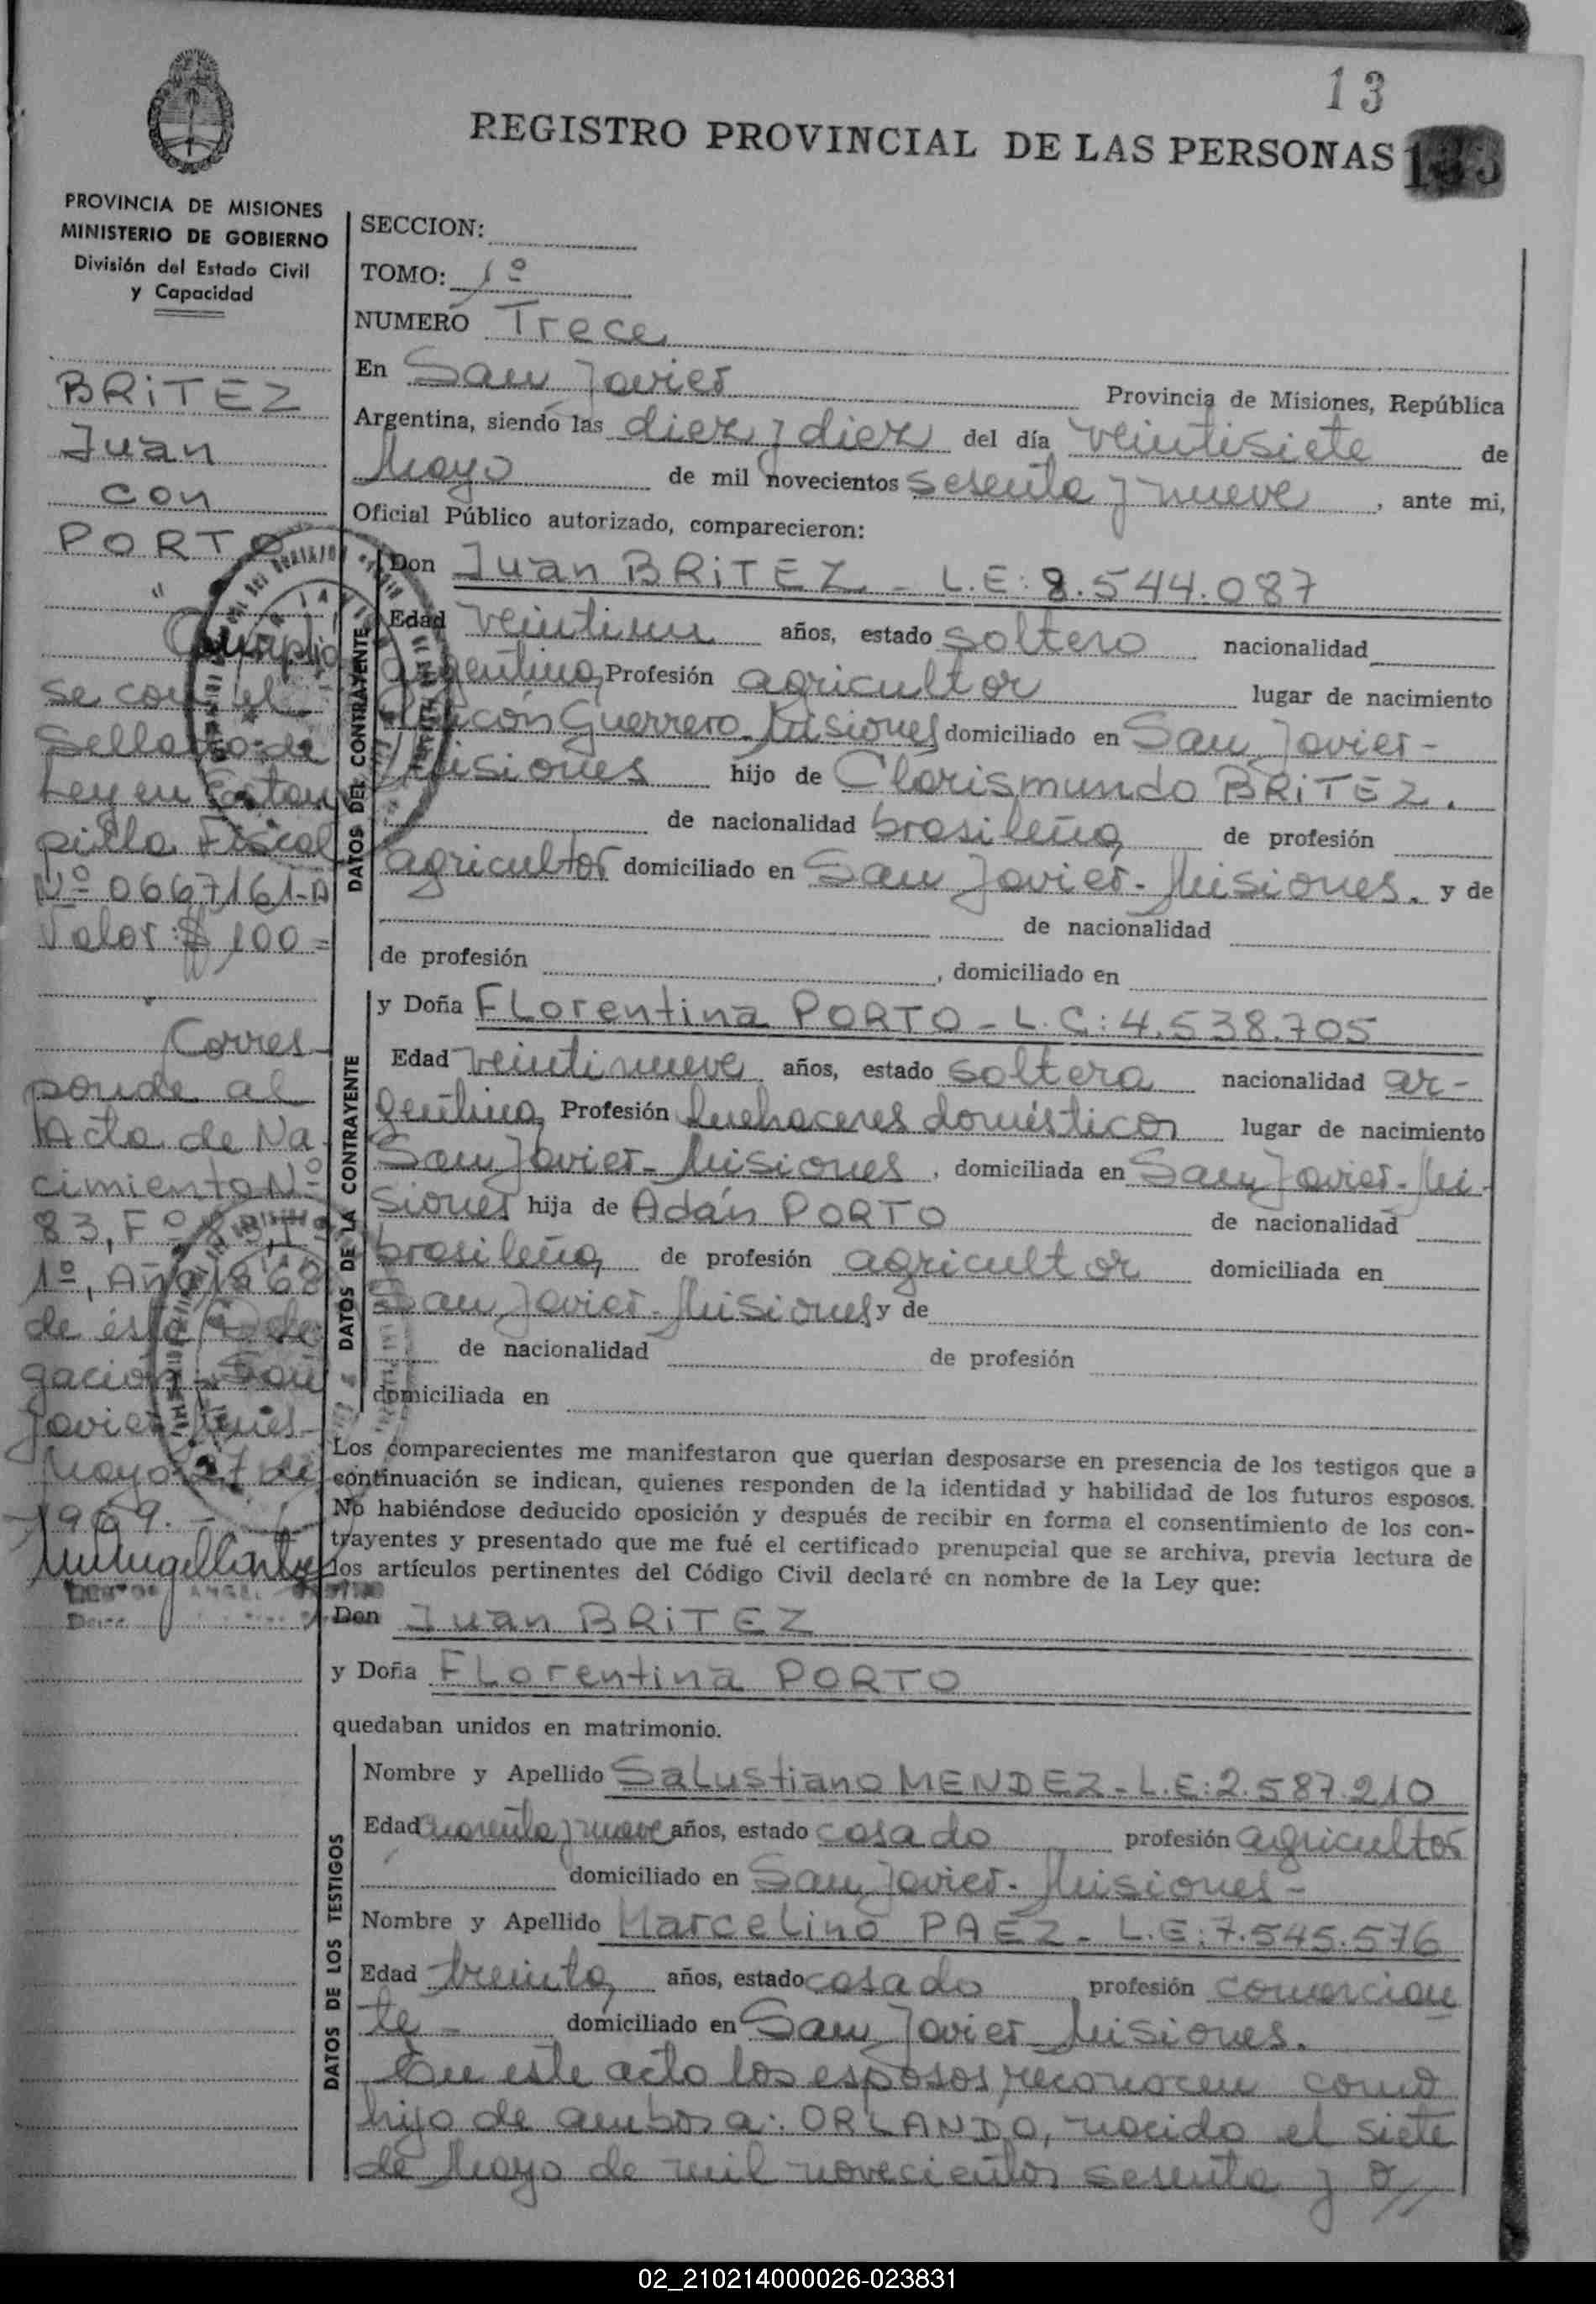 13
REGISTRO PROVINCIAL DE LAS PERSONAS
PROVINCIA DE MISIONES
MINISTERIO DE GOBIERNO
División del Estado Civil
y Capacidad
BRiTEZ
Juan
con
PORTO
"
Cumplió
se con el
Sellado de
Ley en Estam
pilla Fiscal
Nº 0667161-A
Valor: $ 100=
Corres
ponde al
Acta de Na
cimiento Nº
83, Fº 83, Tº
1º, Año 1968
de ésta Dele
gación San
Javier, Mnes-
Mayo 27 de
1969.-
SECCION:
TOMO: 1º
NUMERO Trece
En San Javier Provincia de Misiones, República
Argentina, siendo las diez y diez del día veintisiete de
Mayo de mil novecientos sesenta y nueve, ante mi,
Oficial Público autorizado, comparecieron:
DATOS DEL CONTRAYENTE
Don Juan BRiTEZ - L.E: 8.544.087
Edad veintiun años, estado soltero nacionalidad
argentina, Profesión agricultor lugar de nacimiento
Rincón Guerrero. Misiones domiciliado en San Javier-
Misiones hijo de Clorismundo BRiTEZ.
de nacionalidad brasileña, de profesión
agricultor domiciliado en San Javier- Misiones. y de
de nacionalidad
de profesión , domiciliado en
DATOS DE LA CONTRAYENTE
y Doña FLorentina PORTO - L.C: 4.538.705
Edad veintinueve años, estado soltera nacionalidad ar-
gentina, Profesión Quehaceres domésticos lugar de nacimiento
San Javier- Misiones, domiciliada en San Javier- Mi-
siones hija de Adán PORTO de nacionalidad
brasileña, de profesión agricultor domiciliada en
San Javier- Misiones y de
de nacionalidad de profesión
domiciliada en
Los comparecientes me manifestaron que querían desposarse en presencia de los testigos que a
continuación se indican, quienes responden de la identidad y habilidad de los futuros esposos.
No habiéndose deducido oposición y después de recibir en forma el consentimiento de los con-
trayentes y presentado que me fué el certificado prenupcial que se archiva, previa lectura de
los artículos pertinentes del Código Civil declaré en nombre de la Ley que:
Don Juan BRiTEZ
y Doña FLorentina PORTO
quedaban unidos en matrimonio.
DATOS DE LOS TESTIGOS
Nombre y Apellido SaLustiano MENDEZ - L.E: 2.587.210
Edad cuarenta y nueve años, estado casado profesión agricultor
domiciliado en San Javier- Misiones-
Nombre y Apellido MarceLino PAEZ - L.E: 7.545.576
Edad treinta, años, estado casado profesión comercian
te- domiciliado en San Javier- Misiones.
En este acto los esposos reconocen como
hijo de ambos a: ORLANDO, nacido el siete
de Mayo de mil novecientos sesenta y o//
02_210214000026-023831